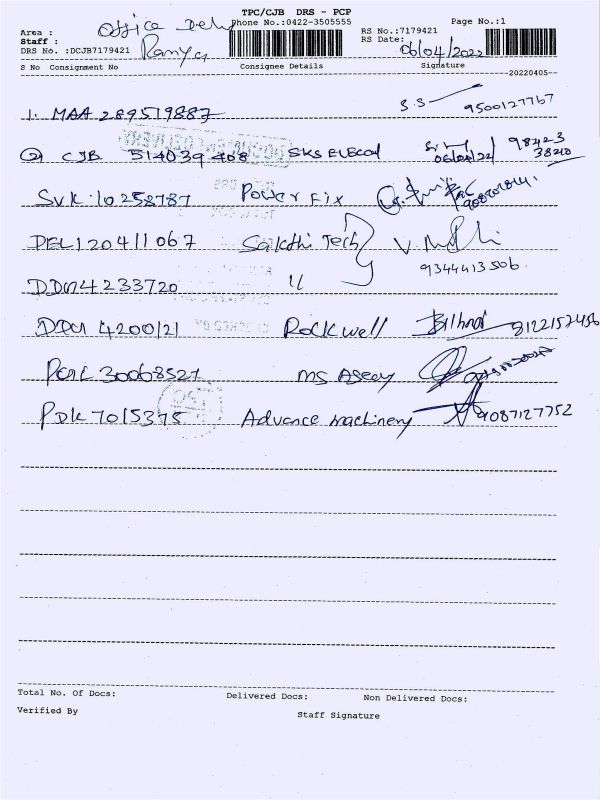 TPC/CJB DRS - PCP
Area : Office Phone No.:0422-3505555 Page No.:1
Staff : Ramya RS No.:7179421
RS Date: 06/04/2022
DRS No. :DCJB7179421
S No Consignment No Consignee Details Signature
--20220405--
1. MAA 289519887 S.S 9500127767
2 CJB 514039408 SKS Elecon 06/04/22 98423 38210
SVK 10258787 Power Fix
DEL 120411067 Sakthi Tech 9344413506
DDM 4233720 "
4200121 Rockwell 8122152456
30068527 MS
PDK 7015375 Advance machinery 9087127752
Total No. Of Docs: Delivered Docs: Non Delivered Docs:
Verified By Staff Signature